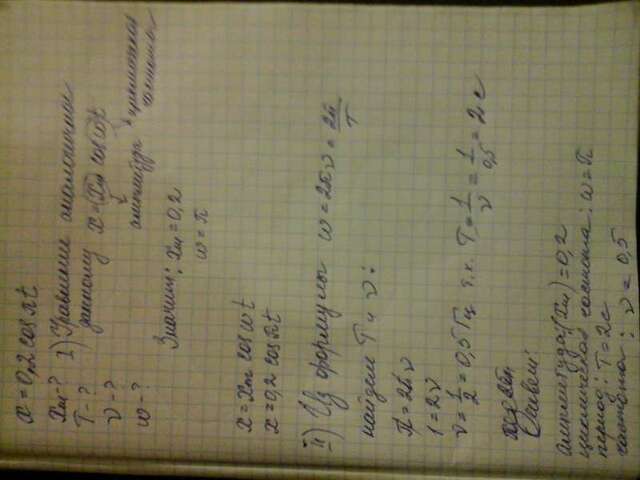 x = 0,2 cos πt
xm - ?
T - ?
ν - ?
ω - ?
I) Уравнение аналогичное
данному x = xm cos ωt
амплитуда
циклическая
частота
Значит; xm = 0,2
ω = π
x = xm cos ωt
x = 0,2 cos πt
II) Из формулы ω = 2πν = 2π/T
найдем T и ν:
π = 2πν
1 = 2ν
ν = 1/2 = 0,5 Гц т.к. T = 1/ν = 1/0,5 = 2 с
Ответ:
амплитуда (xm) = 0,2
циклическая частота: ω = π
период: T = 2с
частота: ν = 0,5